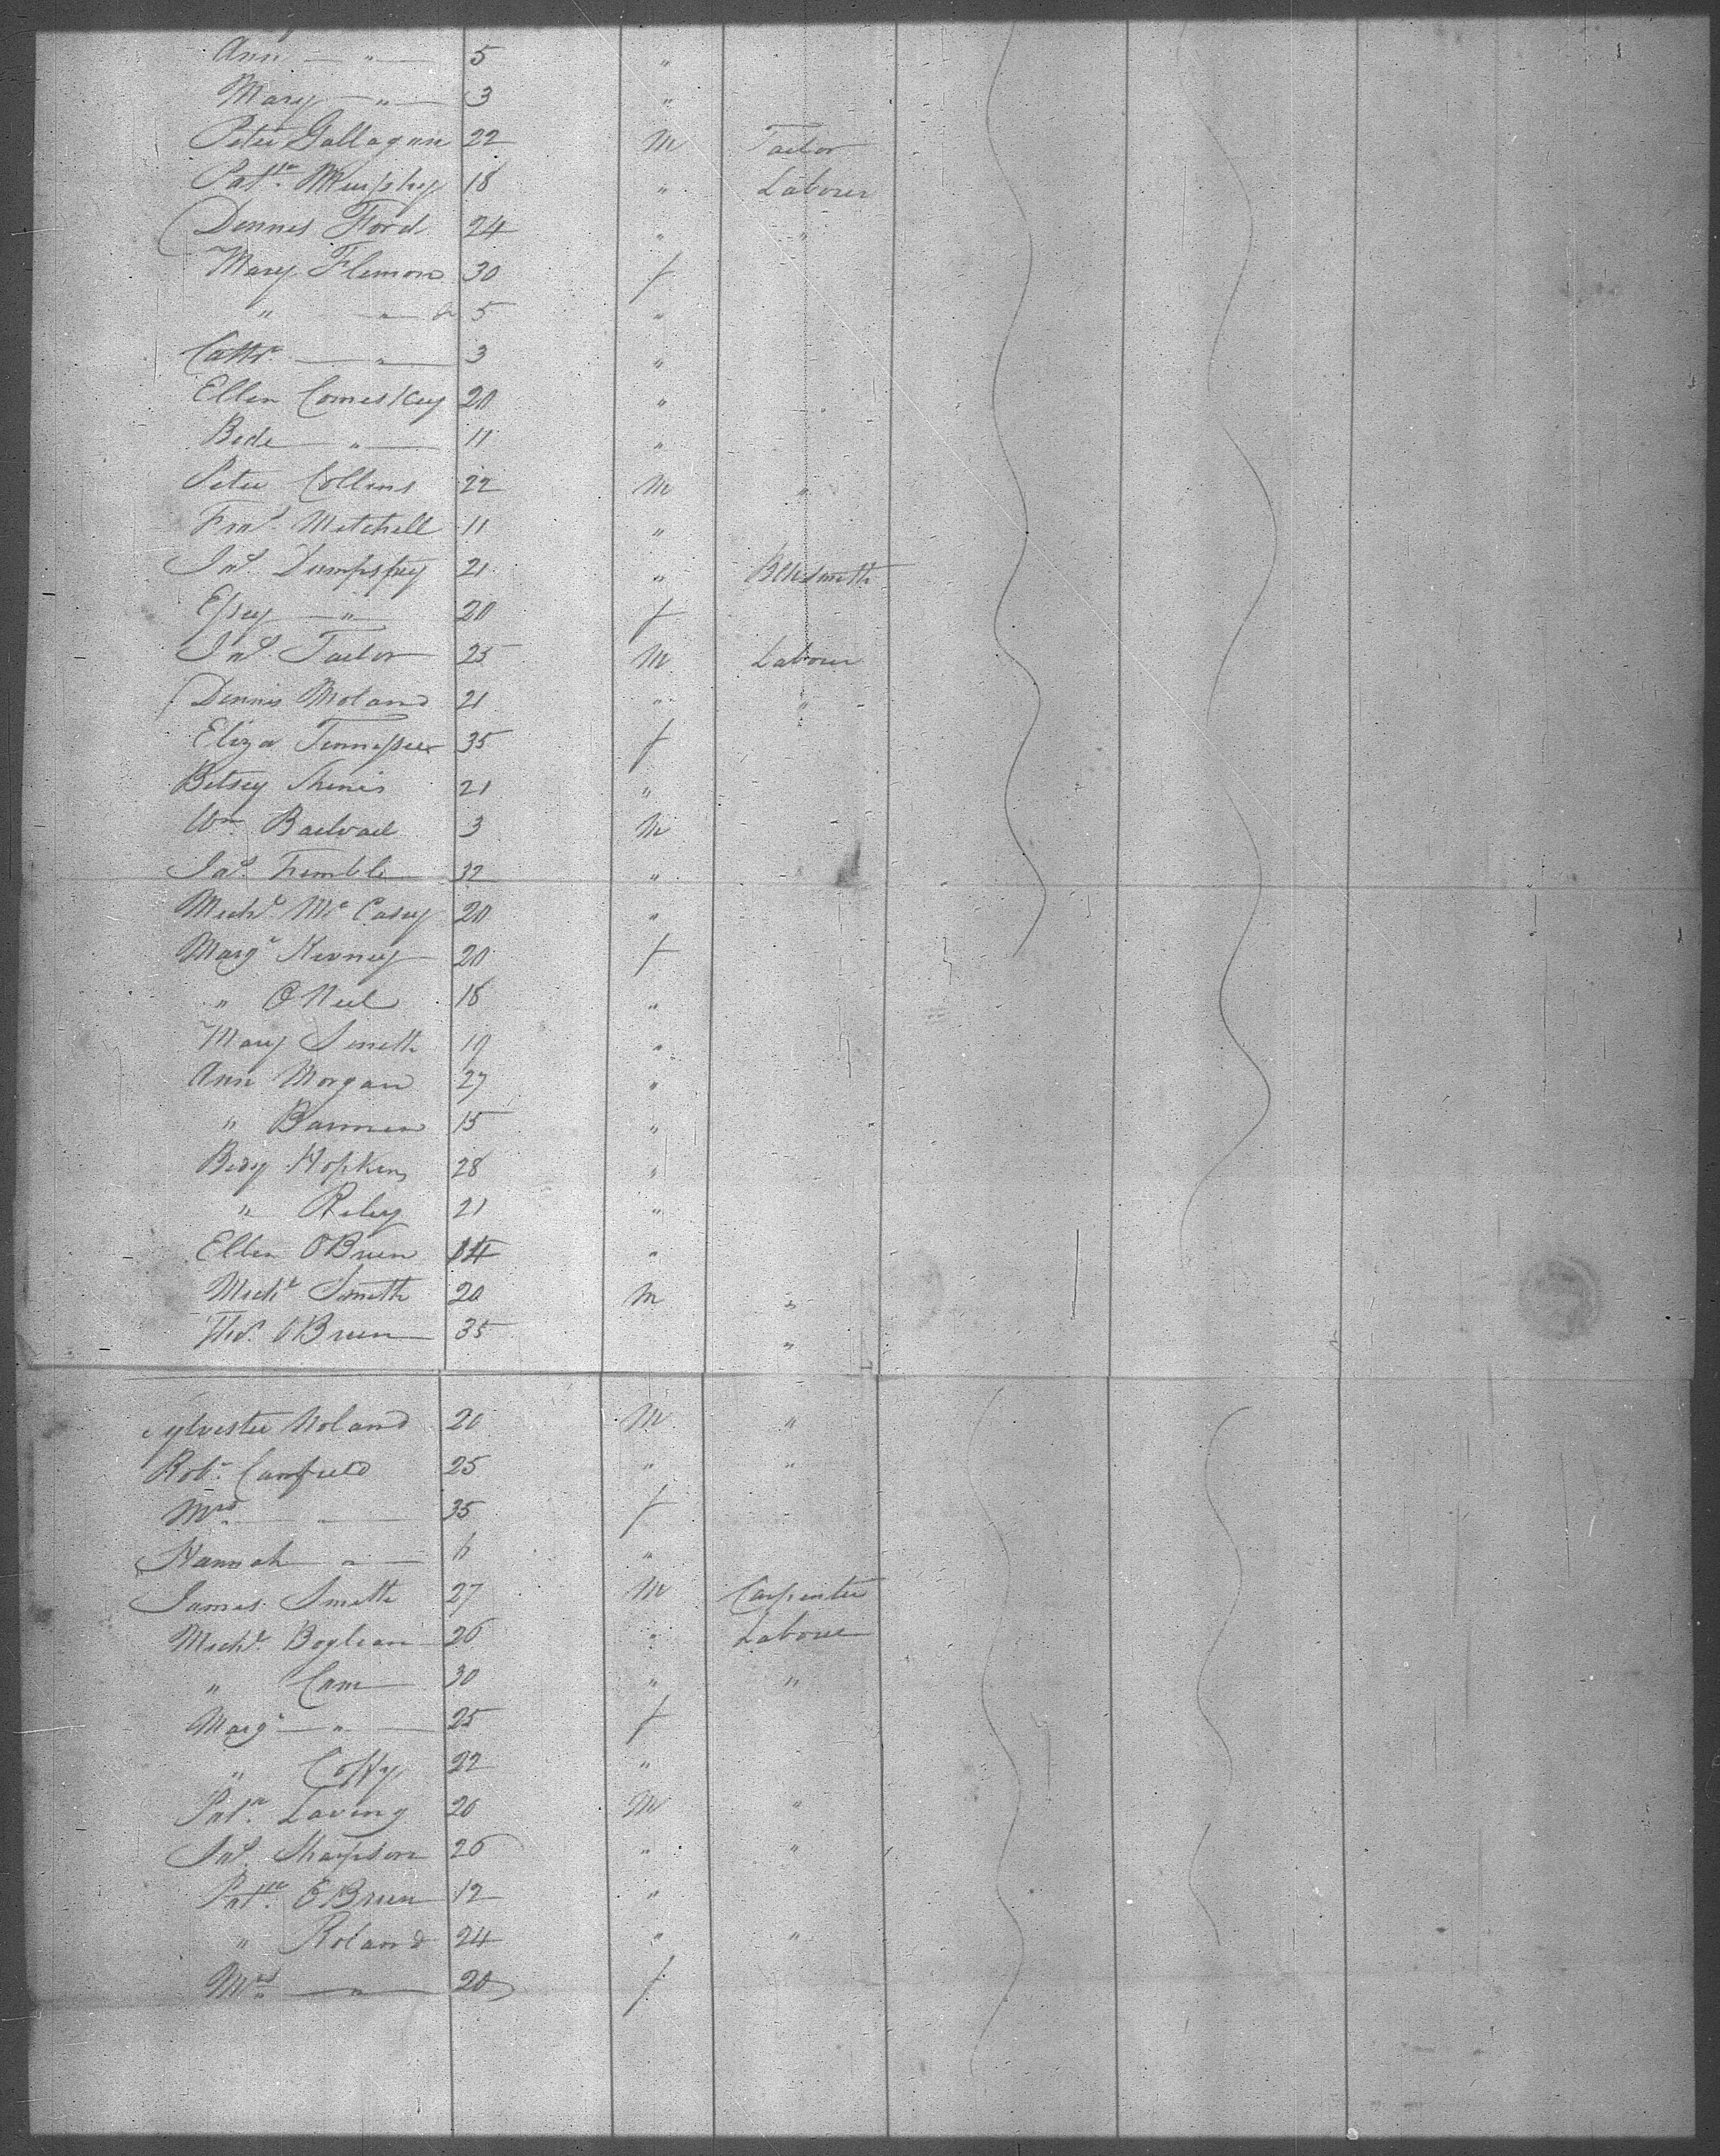 Ann — " — 5 "
Mary — " — 3 "
Peter Gallagan 22 M Tailor
Patk. Murphy 18 " Labourer
Dennis Ford 24 " "
Mary Flemon 30 f
" — " 5 "
Cathr. — " — 3 "
Ellen Comeskey 20 "
Bede — " — 11 "
Peter Collins 22 M "
Frns. Mitchell 11 "
Jno. Dumpsey 21 " Blksmith
Essey — " — 20 f
Jno. Tailor 25 M Labourer
Dennis Moland 21 " "
Eliza 35 f
Betsey 21 "
Wm. 3 M
Jas. Trimble 32 "
Michl. Mc Casey 20 "
Margt. Kerney 20 f
" O Neil 18 "
Mary Smith 19 "
Ann Morgan 27 "
" Bannen 15 "
Bidy Hopkins 28 "
" Riley 21 "
Ellen O'Brien 14 "
Michl. Smith 20 M "
Thos. O'Brien 35 "
Sylvester Noland 20 M "
Robt. Camfield 25 " "
Mrs. — " — 35 f
Hannah — " — 6 "
James Smith 27 M Carpenter
Michl. Boylean 26 " Labourer
" Cain 30 " "
Margt. — " — 25 f
" Coffy 22 "
Patk. Laving 26 M "
Jno. Sharpson 26 " "
Patk. O'Brien 12 "
" Roland 24 " "
Mrs. — " — 20 f